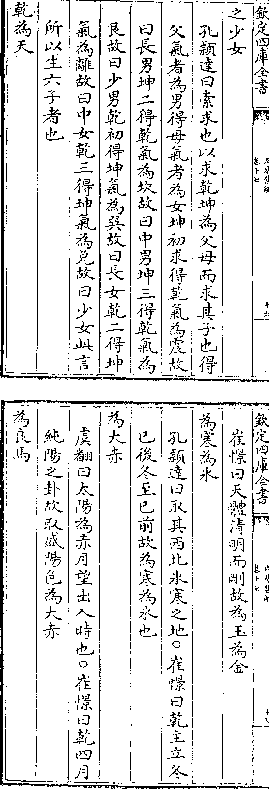 欽定四庫全書
之少女
孔穎達曰索求也以求乾坤為父母而求其子也得
父氣者為男得母氣者為女坤初求得乾氣為震故
曰長男坤二得乾氣為坎故曰中男坤三得乾氣為
艮故曰少男乾初得坤氣為巽故曰長女乾二得坤
氣為離故曰中女乾三得坤氣為兌故曰少女此言
所以生六子者也
乾為天
欽定四庫全書
崔憬曰天體清明而剛故為玉為金
為寒為氷
孔穎達曰取其西北氷寒之地○崔憬曰乾主立冬
已後冬至已前故為寒為氷也
為大赤
虞翻曰太陽為赤月望出入時也○崔憬曰乾四月
純陽之卦故取盛陽色為大赤
為良馬